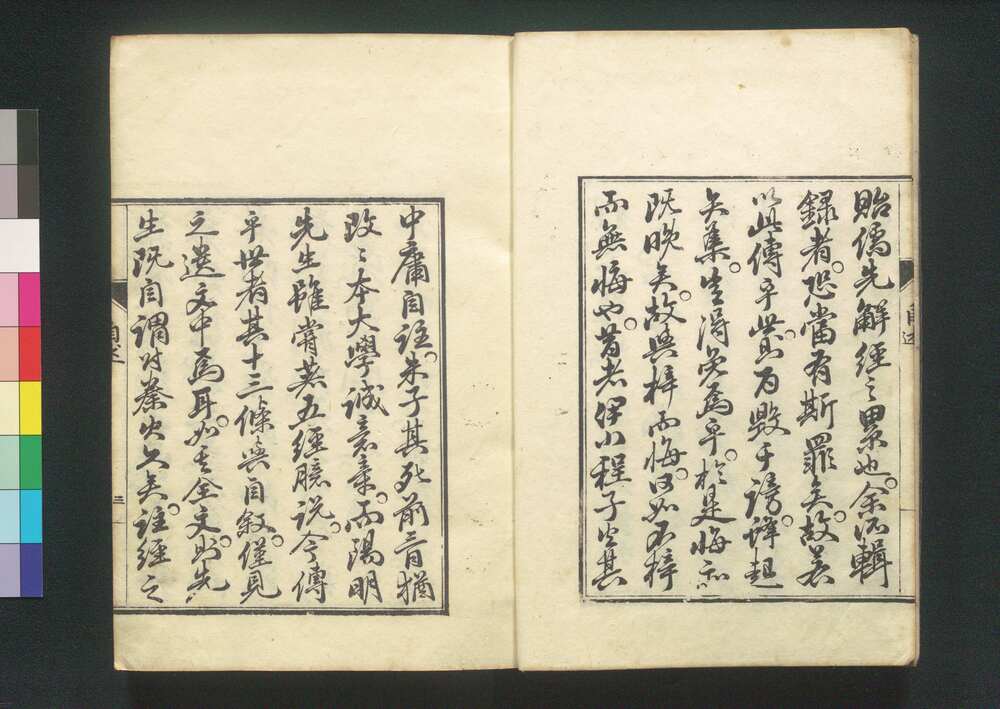 貽儒先解經之累也。余所輯
録者。恐當有斯罪矣。故若
以此傳乎世。毀于謗譁起
矣集。豈得免焉乎。於是悔亦
既晚矣。故與梓而悔。曷如不梓
而無悔也。昔者伊川程子火其
自述
中庸自註。朱子其死前三日猶
改〻本大學誠意章。而陽明
先生雖嘗著五經臆説。今傳
乎世者其十三條與自敘。僅見
之選文中焉耳。如其全文。則先
生既自謂付秦火久矣。註經之
自述
三